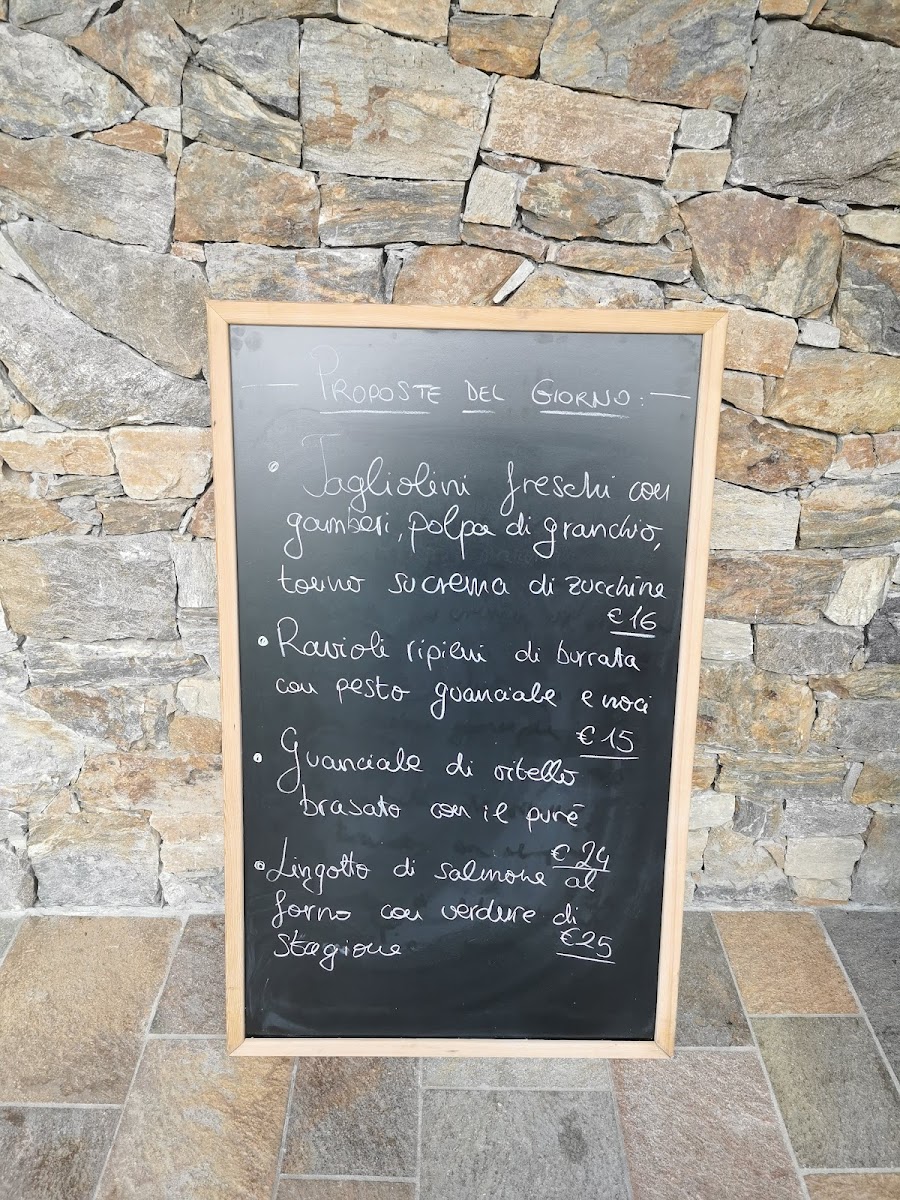 — PROPOSTE DEL GIORNO: —
• Tagliolini freschi con
gamberi, polpa di granchio,
tonno su crema di zucchine
€16
• Ravioli ripieni di burrata
con pesto guanciale e noci
€15
• Guanciale di vitello
brasato con il purè
€24
• Lingotto di salmone al
forno con verdure di
stagione €25